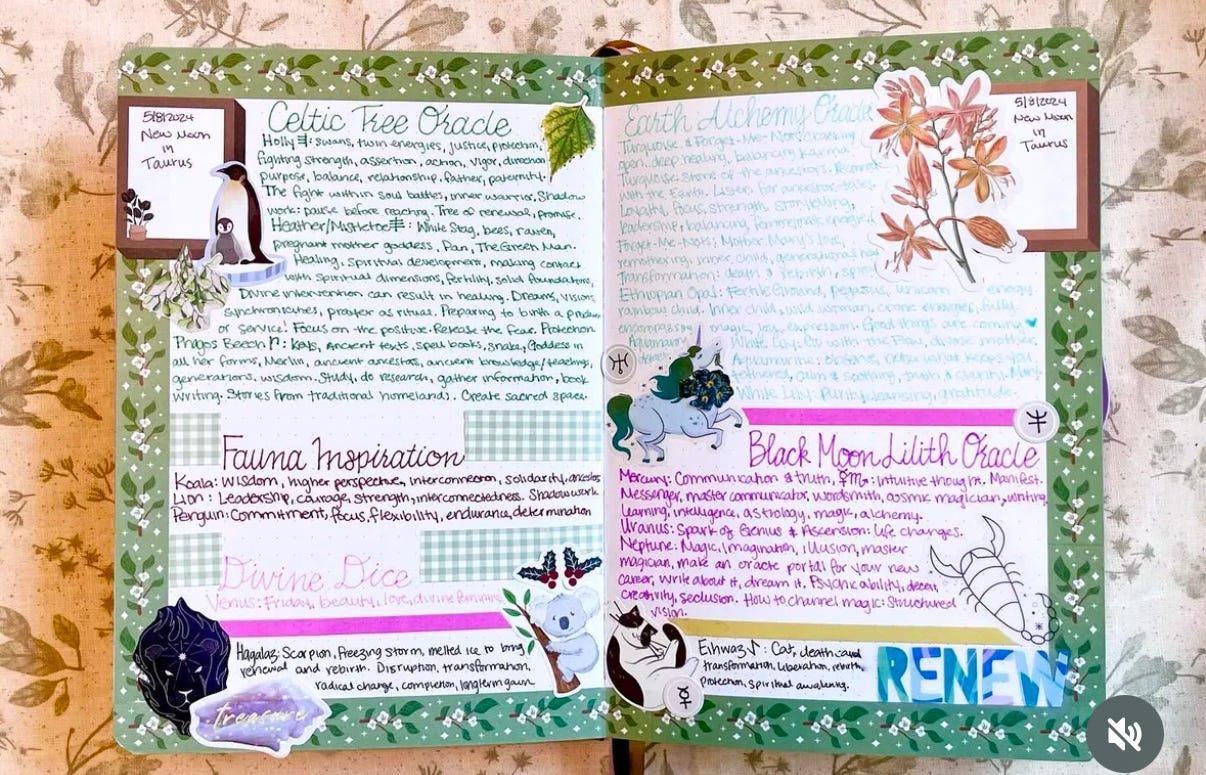 5/8/2024
New Moon
in
Taurus
Celtic Tree Oracle
Holly: swans, twin energies, justice, protection,
fighting strength, assertion, action, vigor, direction
purpose, balance, relationship, father, paternity.
The fight within soul battles, inner warrior, Shadow
work: pause before reacting. Tree of renewal, promise.
Heather/Mistletoe: White Stag, bees, raven,
pregnant mother goddess, Pan, The Green Man.
Healing, spiritual development, making contact
with spiritual dimensions, fertility, solid foundations,
Divine intervention can result in healing. Dreams, visions
synchronicities, prayer as ritual. Preparing to birth a
or service! Focus on the positive. Release the fear. Protection
Phagos Beech: Keys, Ancient texts, spell books, snake, Goddess in
all her forms, Merlin, ancient ancestors, ancient knowledge/teaching,
generations, wisdom. Study, do research, gather information, book
writing. Stories from traditional homelands. Create sacred space.
Fauna Inspiration
Koala: Wisdom, higher perspective, interconnection, solidarity, ancestors
Lion: Leadership, courage, strength, interconnectedness. Shadow work
Penguin: Commitment, focus, flexibility, endurance, determination
Divine Dice
Venus: Friday, beauty, love, divine feminine
Hagalaz: Scorpion, freezing storm, melted ice to bring
renewal and rebirth. Disruption, transformation,
radical change, completion, longterm gain
treasure
Earth Alchemy Oracle
5/8/2024
New Moon
in
Taurus
Turquoise & Forget-Me-Not: cracking
open, deep healing, balancing karma
Turquoise: Stone of the ancestors. Reconnect
with the Earth. Listen for ancestor tales.
Loyalty, focus, strength, storytelling,
leadership, balancing,
Forget-Me-Nots: Mother Mary's love,
remothering, inner child, generational heal
Transformation: death & rebirth,
Ethiopian Opal: Fertile Ground, pegasus, unicorn energy
rainbow child. Inner child, wild woman, crone energies, fully
encompassing magic, joy, expression. Good things are coming ♥
Aquamarine White Lily: Go with the Flow, divine mother,
Aquamarine: observe, release what keeps you
tethered, calm & soothing, truth & clarity. Mary
White Lily: Purity, cleansing, gratitude.
Black Moon Lilith Oracle
Mercury: Communication & truth, ☿♏: intuitive thought. Manifest.
Messenger, master communicator, wordsmith, cosmic magician, writing,
learning, intelligence, astrology, magic, alchemy.
Uranus: Spark of Genius & Ascension: life changes.
Neptune: Magic, imagination, illusion, master
magician, make an oracle portal for your new
career, write about it, dream it, Psychic ability, deceit,
creativity, seclusion. How to channel magic: Structured
vision.
Eihwaz: Cat, death card
transformation, liberation, rebirth,
protection, spiritual awakening.
RENEW